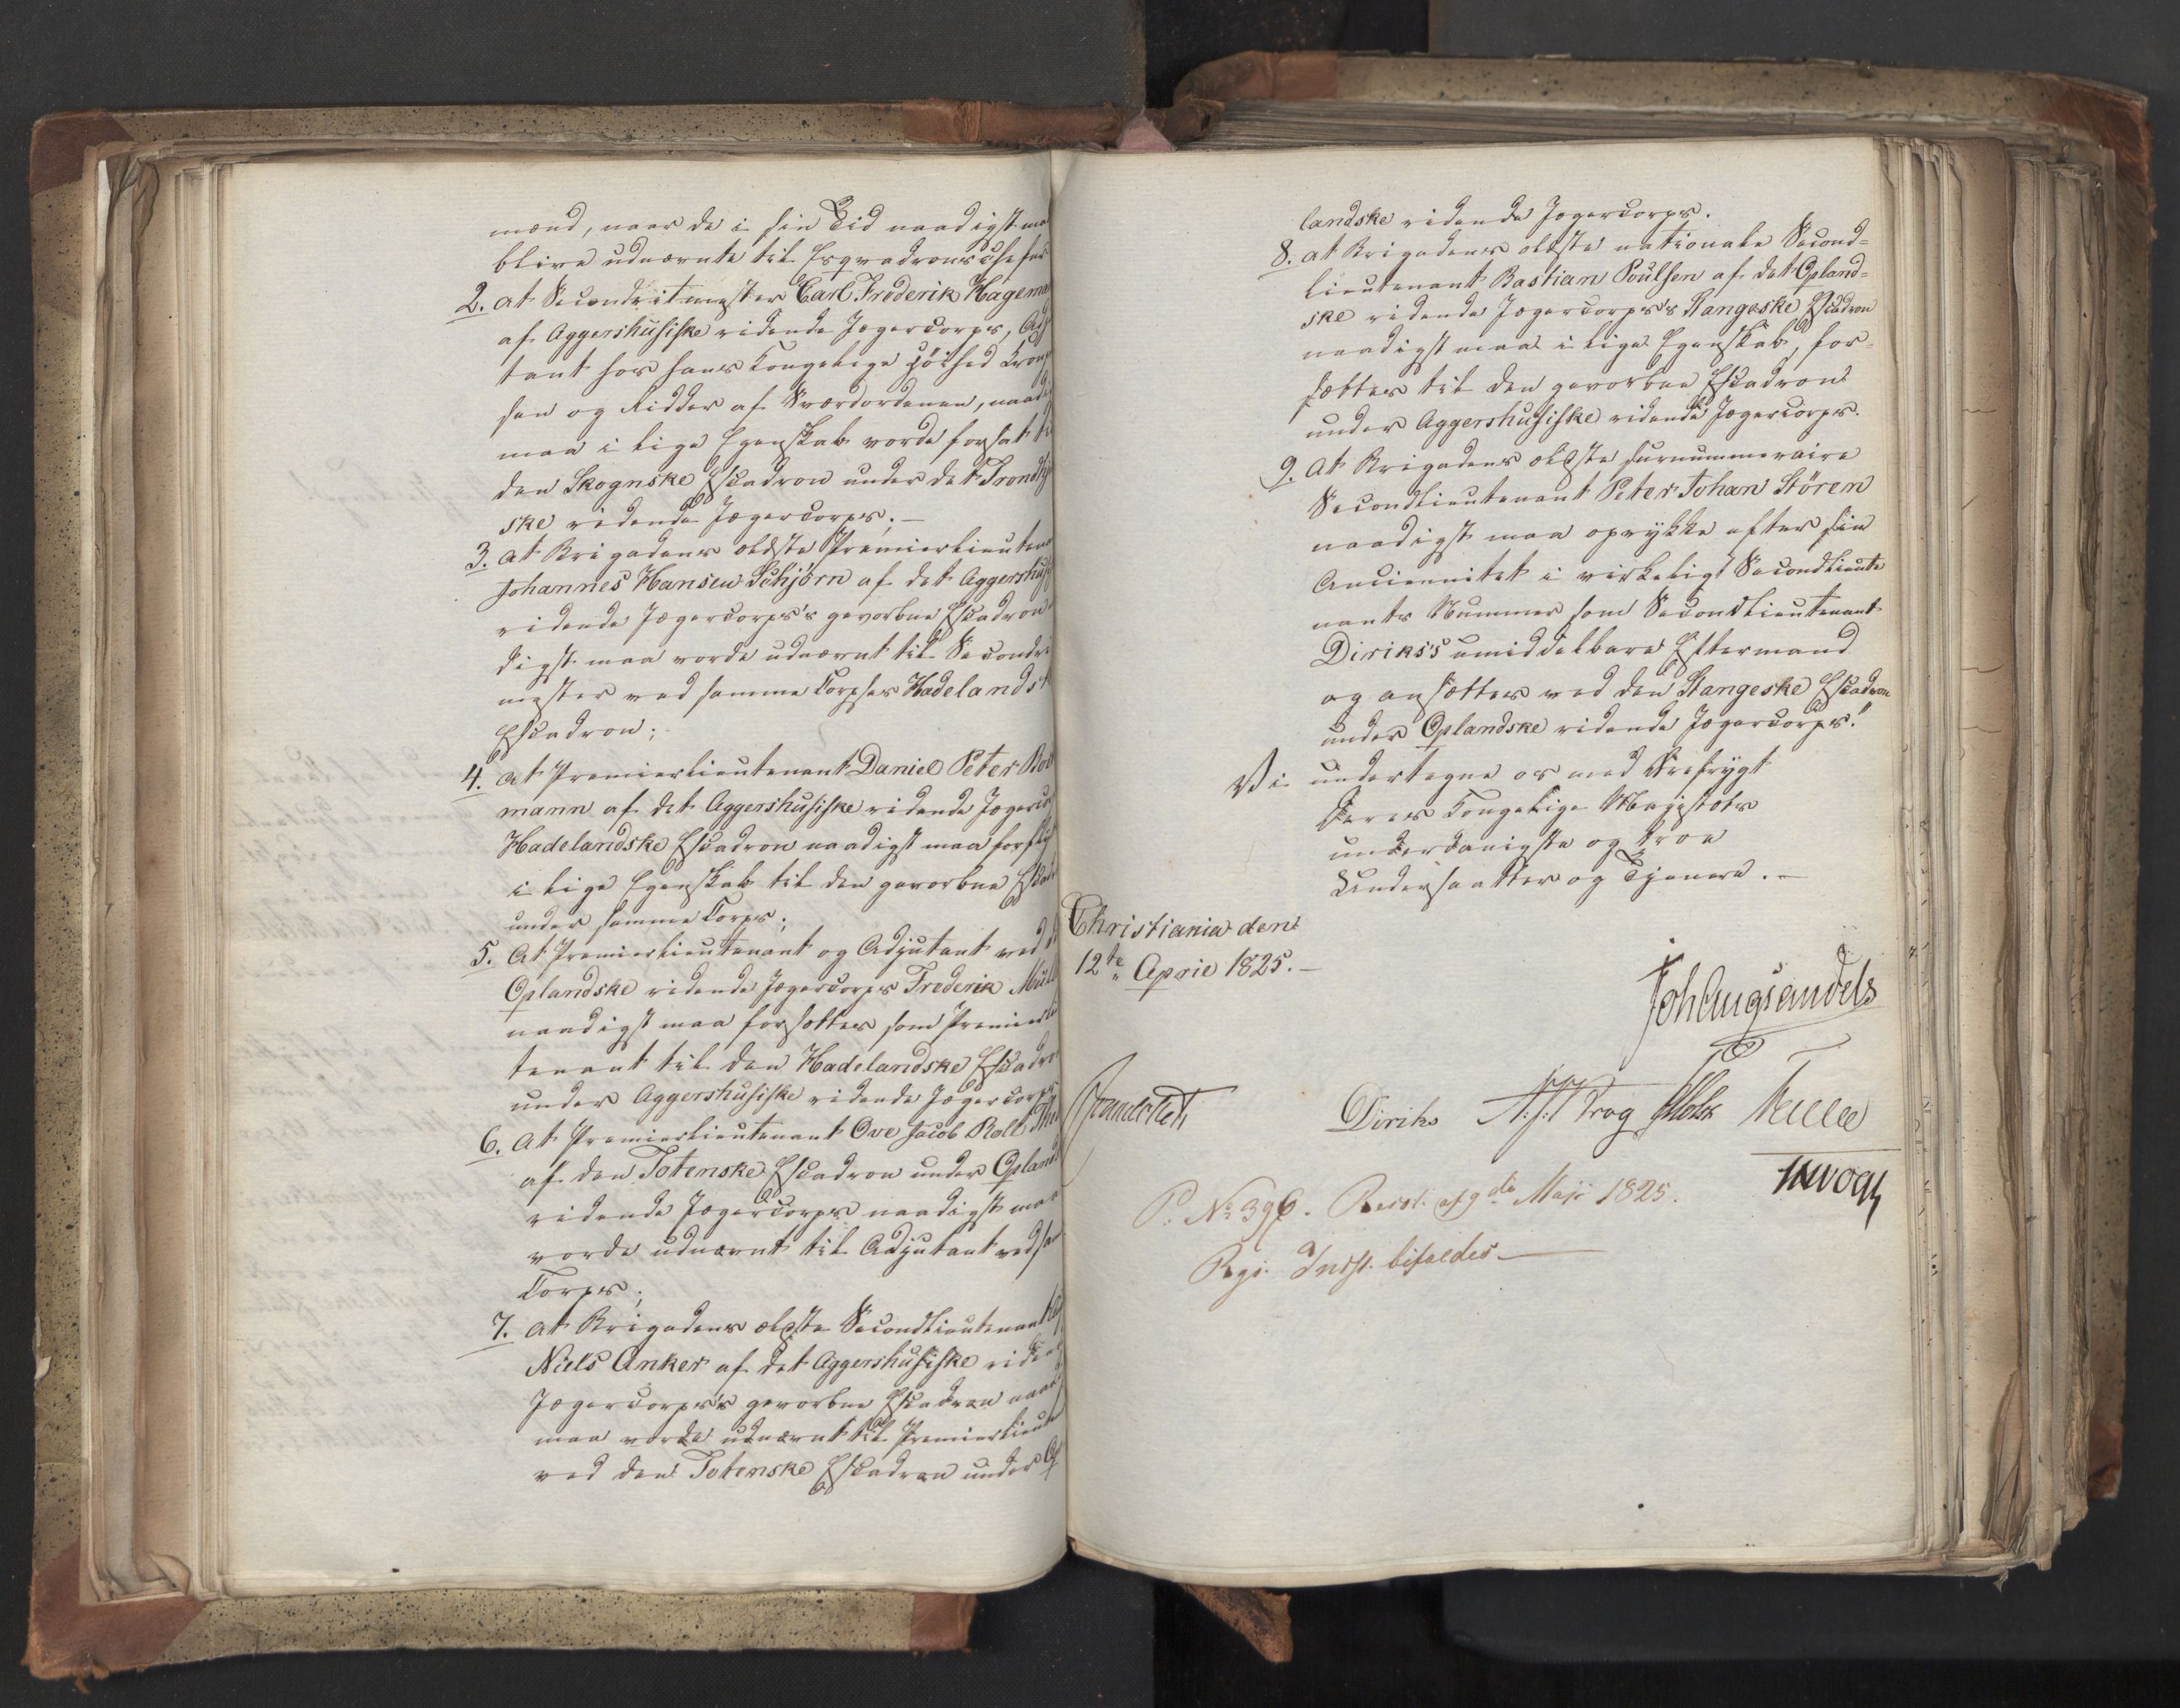 mænd, naar de i sin Tid naadigst maa
blive udnævnte til Esqvadronschefer
2. at Secondritmester Carl Frederik Hagema
af Aggershusiske ridende Jægercorps, Adj
tant hos hans Kongelige Höihed Kronp
sen og Ridder af Sværdordenen, naadi
maa i lige Egenskab vorde forsat til
den Skognske Escadron under det Trondhj
ske ridende Jægercorps;
3. at Brigadens ældste Premierlieuten
Johannes Hansen Schjörn af det Aggershus
ridende Jægercorps's gevorbne Escadron
digst maa vorde udnævnt til Secondri
mester ved samme Corpses Hadelandsk
Escadron;
4. at Premierlieutenant Daniel Peter
mann af det Aggershusiske ridende Jægerco
Hadelandske Escadron naadigst maa forfly
i lige Egenskab til den gevorbne Escadr
under samme Corps;
5. At Premierlieutenant og Adjutant ved d
Oplandske ridende Jægercorps Frederik Mül
naadigst maa forsættes som Premierli
tenant til den Hadelandske Escadro
under Aggershusiske ridende Jægercorps
6. At Premierlieutenant Ove Jacob Roll
af den Totenske Escadron under Opland
ridende Jægercorps naadigst maa
vorde udnævnt til Adjutant ved sam
Corps;
7. at Brigadens ældste Secondlieutenant
Niels Anker af det Aggershusiske riden
Jægercorps's gevorbne Escadron naad
maa vorde udnævnt til Premierlieute
ved den Totenske Escadron under Op
landske ridende Jægercorps.
8. at Brigadens ældste nationale Second=
lieutenant Bastian Poulsen af det Opland=
ske ridende Jægercorps's Stangeske Escadron
naadigst maa i lige Egenskab, for=
sættes til den gevorbne Escadron
under Aggershusiske ridende Jægercorps.
9. At Brigadens ældste surnummeraire
Secondlieutenant Peter Johan Stören
naadigst maa oprykke efter sin
Anciennitet i virkeligt Secondlieute
nants Nummer som Secondlieutenant
Diriks's umiddelbare Eftermand
og ansættes ved den Stangeske Escadron
under Oplandske ridende Jægercorps."
Vi undertegne os med Ærefrygt
Deres Kongelige Majestæts
underdanigste og troe
Undersaatter og Tjenere.
Christiania den
12te April 1825.
Joh Aug Sandels
Diriks Holst
P. No 396. Resol. af 9de Maji 1825.
Rgs. Indst. bifaldes